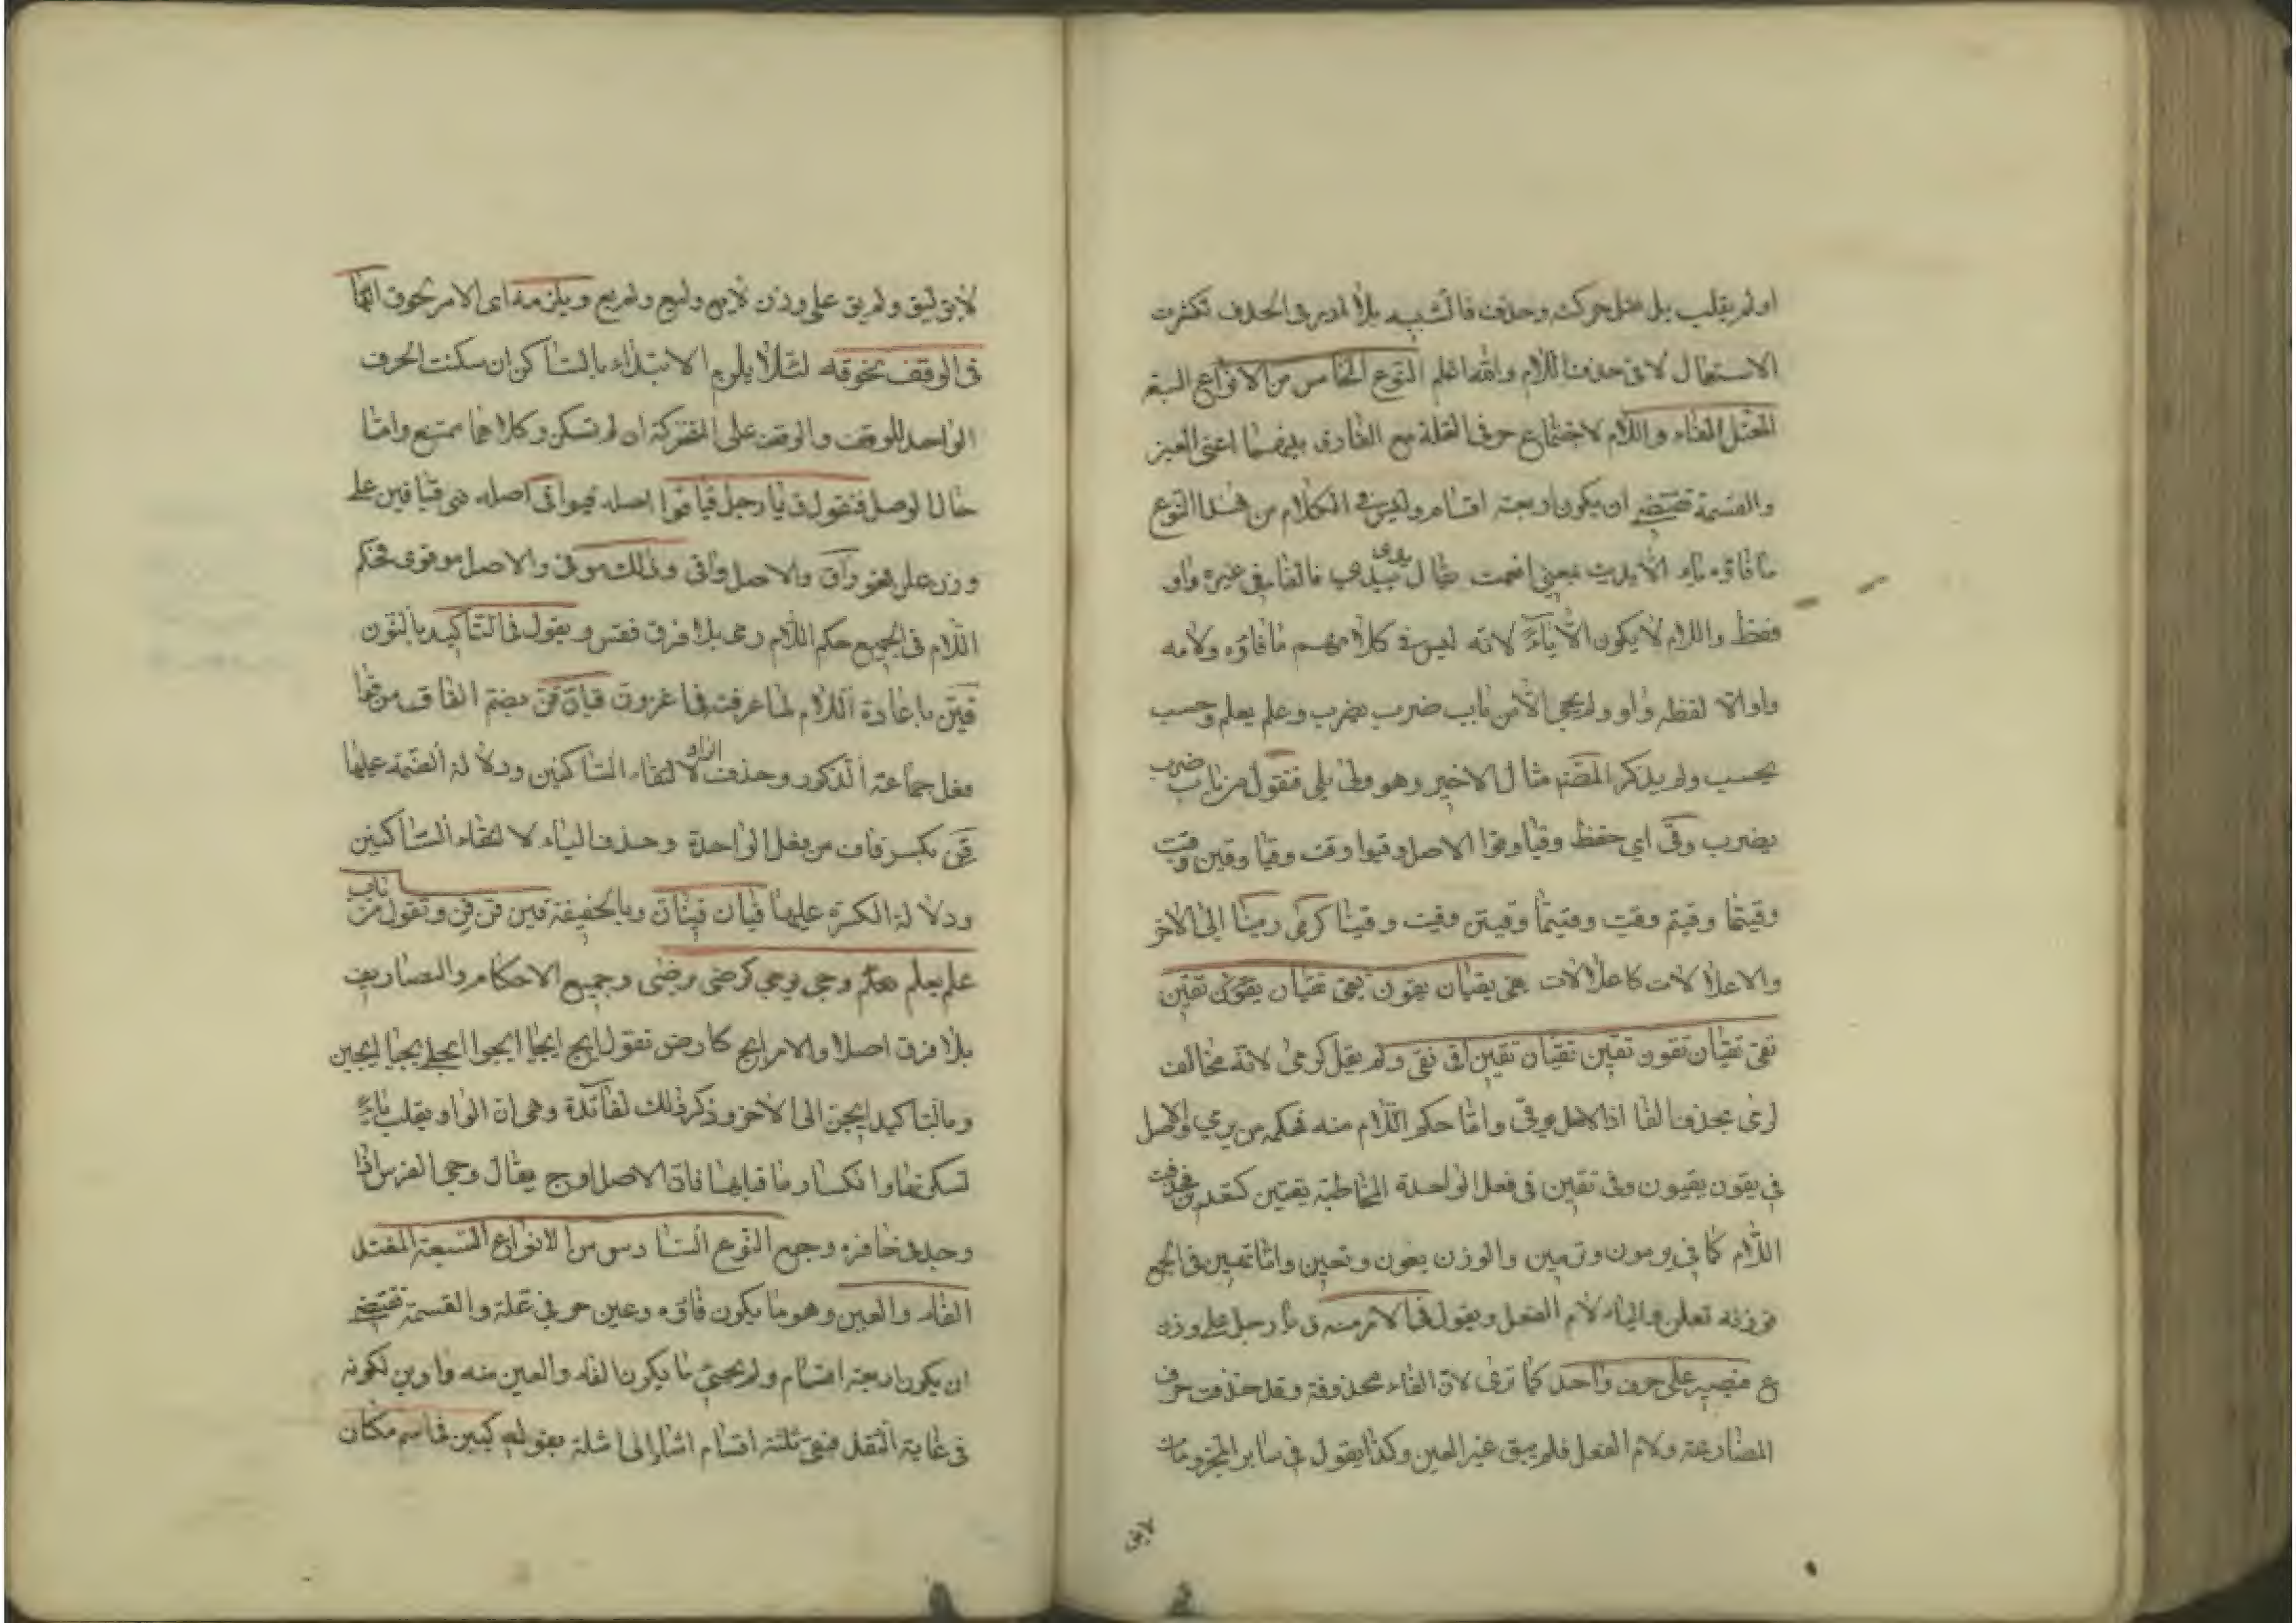 او لم يقلب بل نقل حركته وحذف فالتشبيه بلا ادر في الحذف لكثرت
الاستعمال لا في حذف اللام والله اعلم النوع الخامس من الانواع السبعة
المعتل الفاء واللام لاجتماع حرفي العلة مع الفارق بينهما اعني العين
والقسمة تقتضي ان يكون اربعة اقسام وليس في الكلام من هذا النوع
ما فاؤه ياء الا يديت بمعنى انعمت يقال يدي ييدي فالفاء في غيره واو
فقط واللام لا يكون الا ياء لانه ليس في كلامهم ما فاؤه ولامه
واو الا لفظه واو ولم يجئ الا من باب ضرب يضرب وعلم يعلم وحسب
يحسب ولم يذكر المصنف مثال الاخير وهو ولي يلي فتقول من باب ضرب
يضرب وقى اي حفظ وقيا وقوا الاصل وقيوا وقت وقتا وقين وقيت
وقيتما وقيتم وقيت وقيتما وقيتن وقيت وقينا كرمى رمينا الى الاخر
والاعلالات كاعلالات يقي يقيان يقون تقي تقيان يقين
تقي تقيان تقون تقين تقيان تقين اقي نقي ولم يقل كرمى لانه مخالف
لرمى بحذف الفا اذ الاصل يوقي واما حكم اللام منه فحكمه من يرمي والاصل
في يقون يقيون وفي تقين في فعل الواحدة المخاطبة تقيين كتعدين فحذفت
اللام كما في يرمون وترمين والوزن يعون وتعين واما تقين في الجمع
فوزنه تعلن والياء لام الفعل ويقول في الامر منه ق يا رجل على وزن
ع فيصير على حرف واحد كما ترى لان الفاء محذوفة وقد حذفت حرف
المضارعة ولام الفعل فلم يبق غير العين وكذا يقول في ساير المجزومات
لا يق
لا يق ليق ولم يق على وزن لا يع وليع ولم يع ويلزمه اي الامر لحوق الهاء
في الوقف نحو قه لئلا يلزم الابتداء بالساكن ان سكنت الحرف
الواحد للوقف والوقف على المتحركة ان لم تسكن وكلاهما ممتنع واما
حال الوصل فتقول ق يا رجل قيا قوا اصله قيوا قي اصله قيي قيا قين على
وزن علن فهو واق والاصل واقي وذلك موقي والاصل موقوي فحكم
اللام في الجميع حكم اللام رمى بلا فرق فقس ويقول في التاكيد بالنون
قين باعادة اللام لما عرفت في اغزون قيان قن بضم القاف من فعل
فعل جماعة الذكور وحذف الواو لالتقاء الساكنين ودلالة الضمة عليها
قن بكسر قاف من فعل الواحدة وحذف الياء لالتقاء الساكنين
ودلالة الكسرة عليها قيان قينان وبالخفيفة قين قن قن وتقول من باب
علم يعلم وجي يوجي كرضي يرضى وجميع الاحكام والتصاريف
بلا فرق اصلا والامر ايج كارض تقول ايج ايجيا ايجوا ايجي ايجيا ايجين
وبالتاكيد ايجين الى الاخر وذكر ذلك لفائدة وهي ان الواو يقلب ياء
لسكونها وانكسار ما قبلها فان الاصل اوج يقال وجي الفرس اذا
وجد في حافره وجع النوع السادس من الانواع السبعة المعتل
الفاء والعين وهو ما يكون فاؤه وعين حرفي علة والقسمة تقتضي
ان يكون اربعة اقسام ولم يجئ ما يكون الفاء والعين منه واوين لكونه
في غاية الثقل فبقي ثلثة اقسام اشار الى امثلة بقوله كيين في اسم مكان